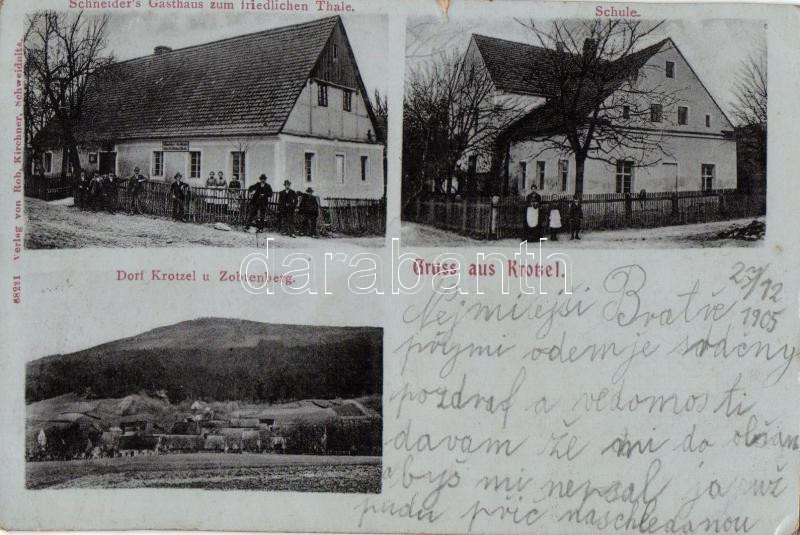 Schneider's Gasthaus zum friedlichen Thale.
Schule.
68221 Verlag von Rob. Kirchner, Schweidnitz.
Dorf Krotzel u Zobtenberg.
Gruss aus Krotzel.
darabanth
27/12
1905
Nejmilejši Bratře
přijmi odemje srdečny
pozdraf a vědomosti
davam že mi do
abyš mi nepsal ja už
pudu přic naschledanou